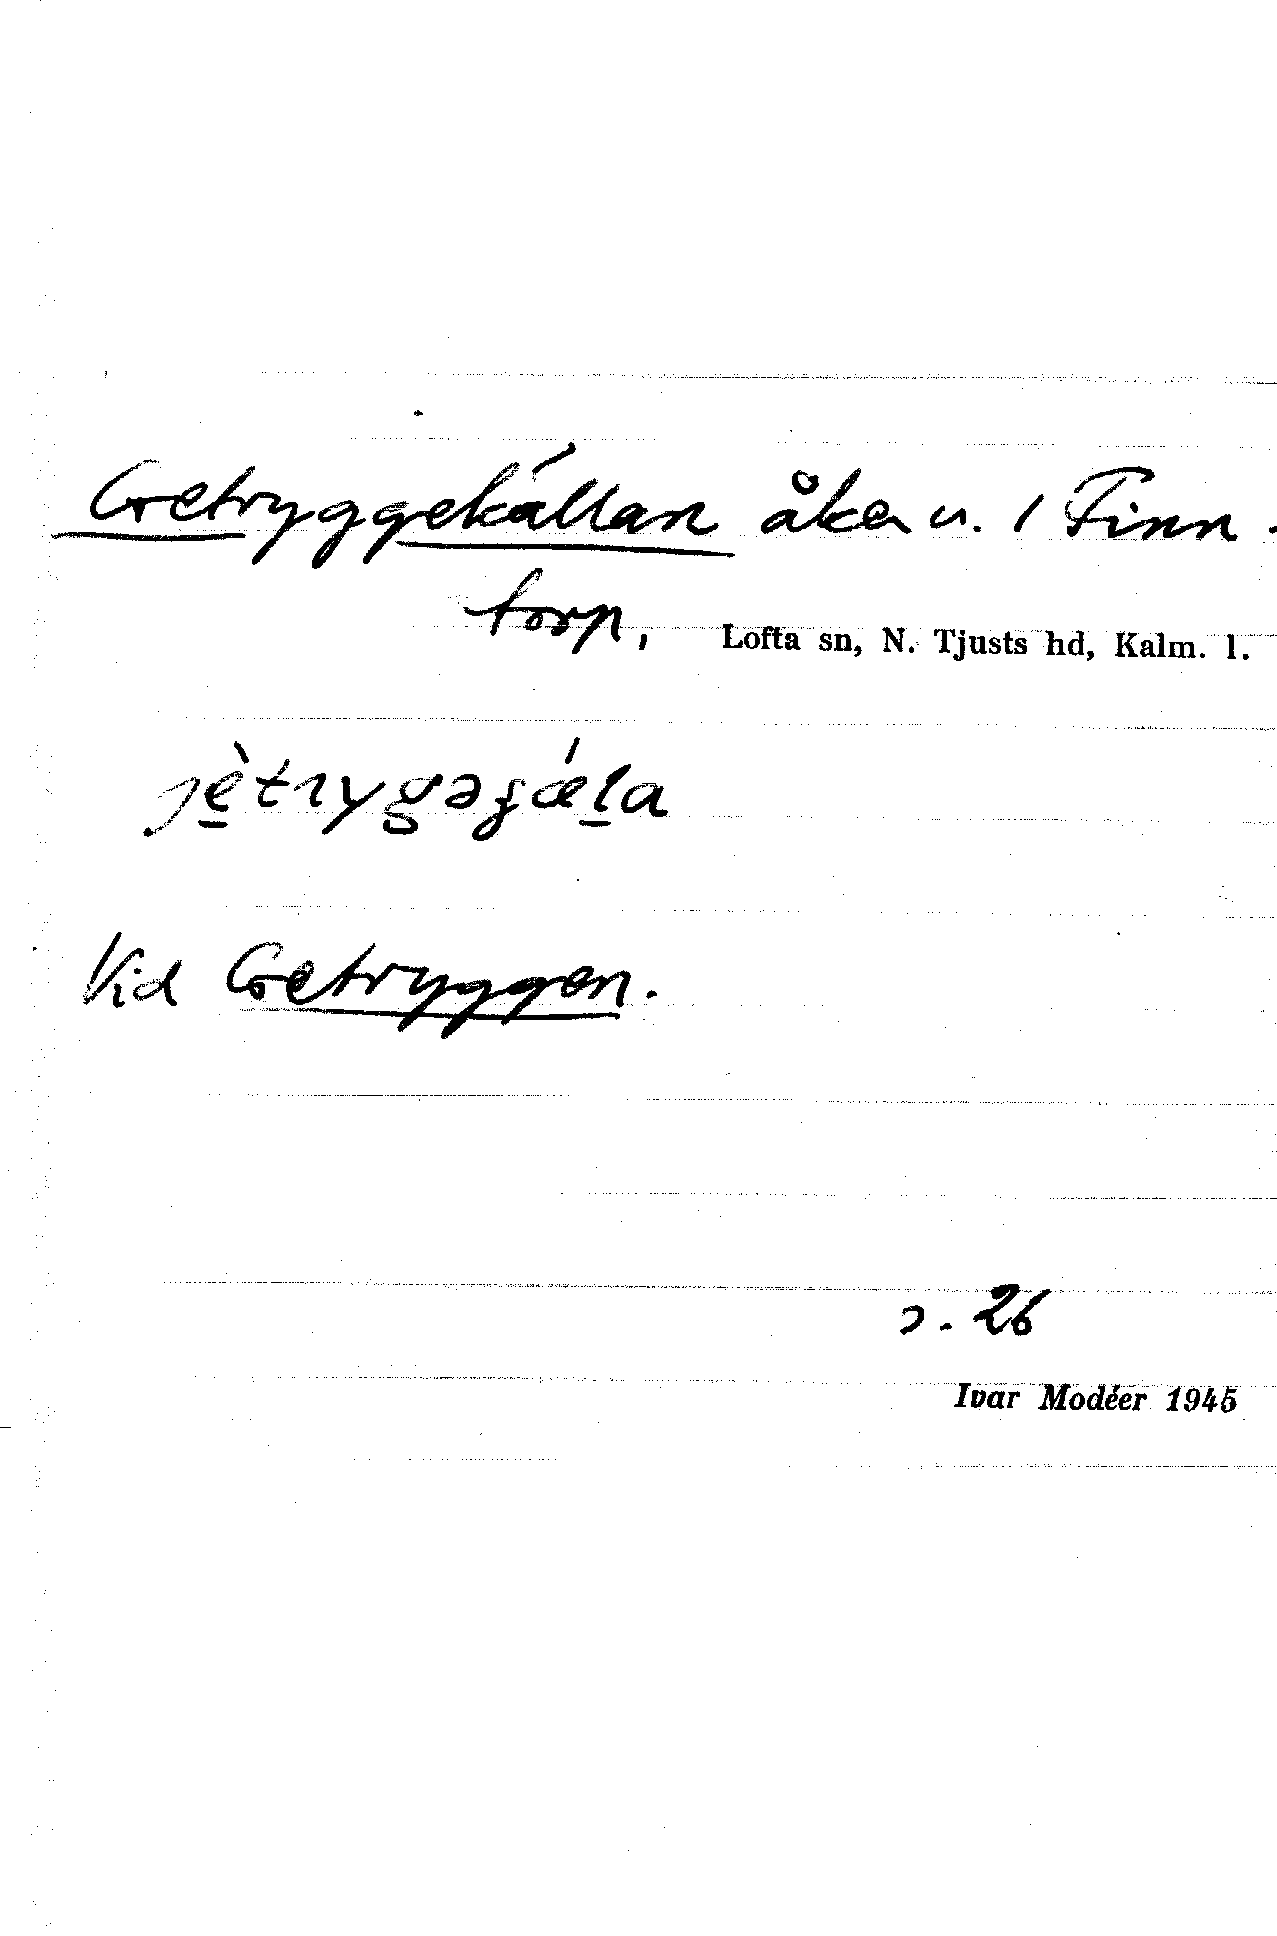 Getryggekällan åker u. 1 Finn-
torp, Lofta sn, N. Tjusts hd, Kalm. l.
jè̱tryga̡ʒǽḻa
Vid Getryggen.
s. 26
Ivar Modéer 1945